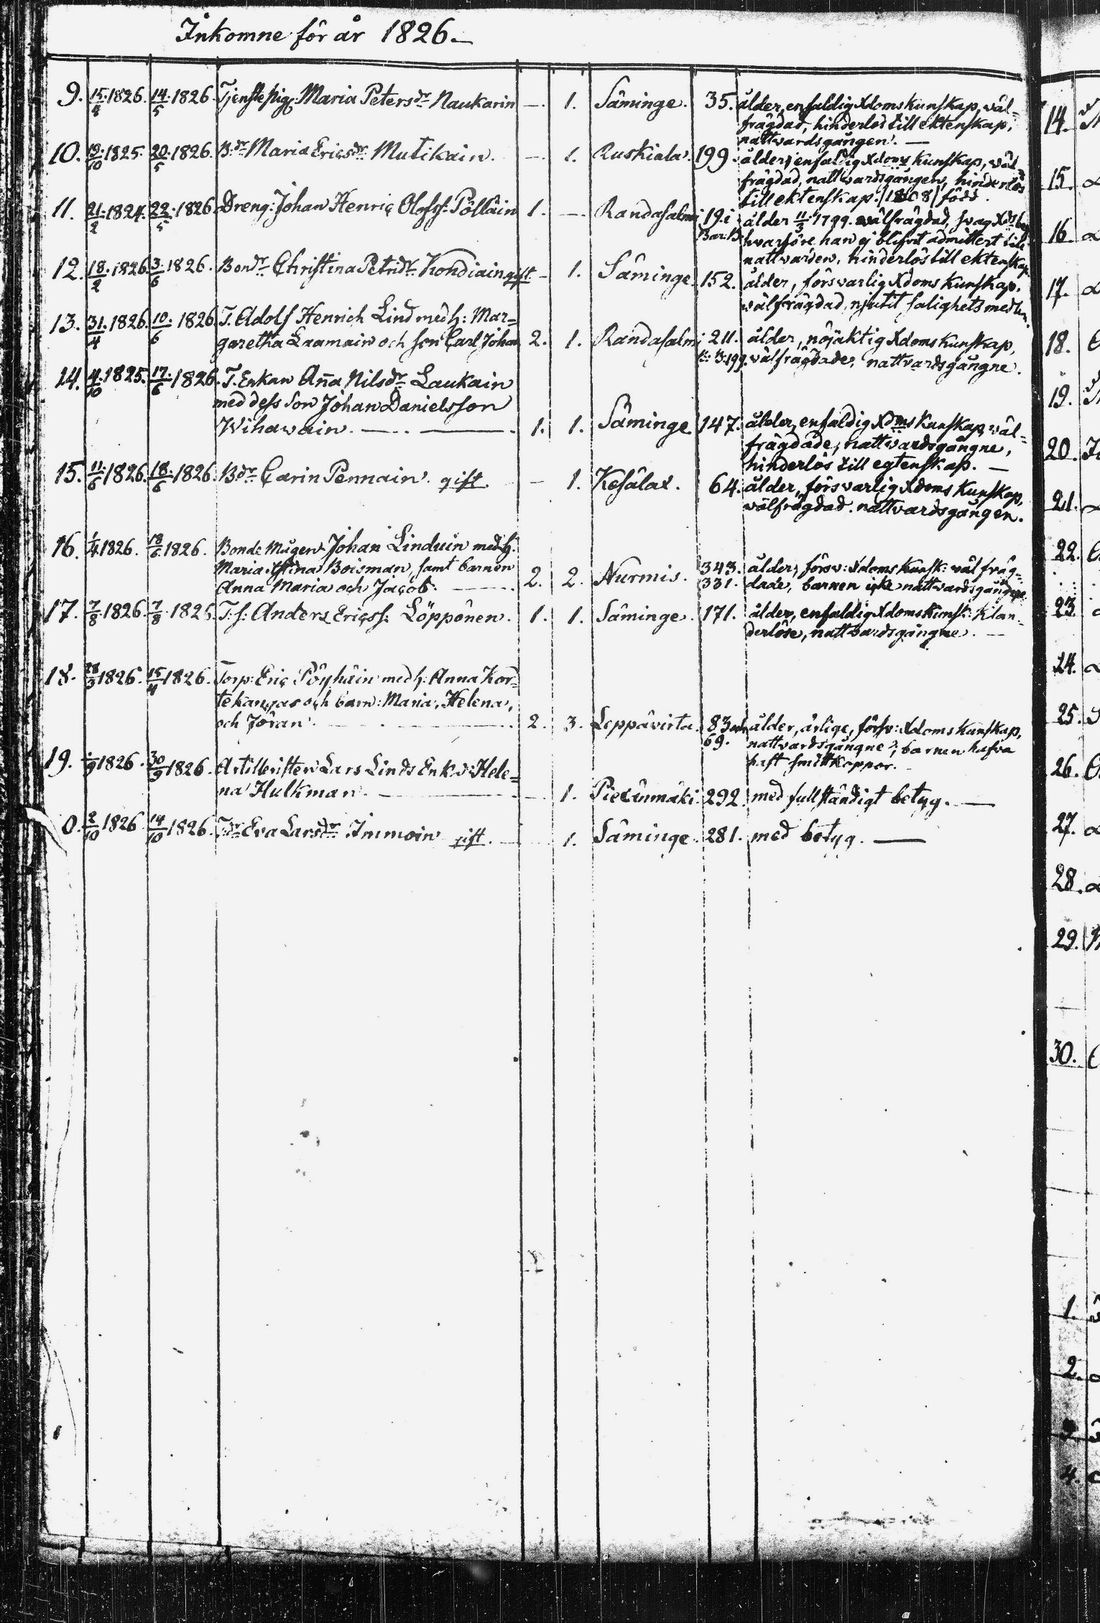 Inkomne för år 1826.
9. 15/5 1826. 14/5 1826. Tjenstepig. Maria Petersdr Naukarin — 1. Säminge. 35. ålder, enfaldig Xdoms kunskap, väl-
frägdad, hinderlös till ektenskap,
nattvardsgången. —
10. 19/10 1825. 20/5 1826. Bdr Maria Ericsdr Mutikain. — 1. Ruskiala. 199. ålder, enfaldig Xdoms kunskap, väl
frägdad, nattvardsgången, hinderlös
till ektenskap. 1808 föds.
11. 21/2 1824. 22/5 1826. Dreng: Johan Henric Olofss: Pöllain 1. — Randasalmi 191 ålder 11/3 1799. välfrägdad, svag Xds
hvarföre han ej blifvit admitterd till
nattvarden, hinderlös till ektenskap.
12. 18/2 1826. 3/6 1826. Bondr Christina Petridr Kondiain gift — 1. Säminge. 152. ålder, försvarlig Xdoms kunskap,
välfrägdad, njutit salighets medlen.
13. 31/4 1826. 10/6 1826. T. Adolf Henrich Lind med h: Mar=
garetha Laamain och son Carl Johan 2. 1. Randasalmi 211. ålder, nöjaktig Xdoms kunskap,
199. välfrägdade, nattvardsgångne.
14. 4/10 1825. 17/6 1826. T. Enkan Anna Nilsdr Laukain
med dess son Johan Danielsson
Wihavain. — 1. 1. Säminge. 147. ålder, enfaldig Xdms kunskap, väl-
frägdade, nattvardsgångne,
hinderlös till egtenskap. —
15. 11/6 1826. 18/6 1826. Bdr Carin Pennain. gift — 1. Kesälax. 64. ålder, försvarlig Xdoms kunskap,
välfrägdad. nattvardsgången.
16. 1/4 1826. 18/6 1826. Bonde Mågen Johan Linduin med h:
Maria Stina Boisman, samt barnen
Anna Maria och Jacob. 2. 2. Nurmis. 343. ålder, försv: Xdoms kunsk: väl fräg-
331. dade, barnen icke nattvardsgångne
17. 7/8 1826. 7/8 1826. T. s: Anders Ericss: Löppönen. 1. 1. Säminge. 171. ålder, enfaldig Xdoms kunsk: klan-
derlöse, nattvardsgångne. —
18. 28/3 1826. 15/4 1826. Torp: Eric Pöyhäin med h: Anna Kor=
tekangas och barn: Maria, Helena,
och Jöran. 2. 3. Leppävirta. 83 och ålder, ärlige, försv: Xdoms kunskap,
69. nattvardsgångne, barnen hafva
haft smittkoppor.
19. 1826. 30/9 1826. Artilleristen Lars Linds Enka: Hele=
na Hulkman. 1. Piexämäki. 292. med fullständigt betyg. —
0. 2/10 1826. 14/10 1826. Eva Larsdr Immoin gift. 1. Säminge. 281. med betyg. —
14.
15.
16
17.
18.
19.
20.
21.
22.
23.
24.
25.
26.
27.
28.
29.
30.
1.
2.
3
4.